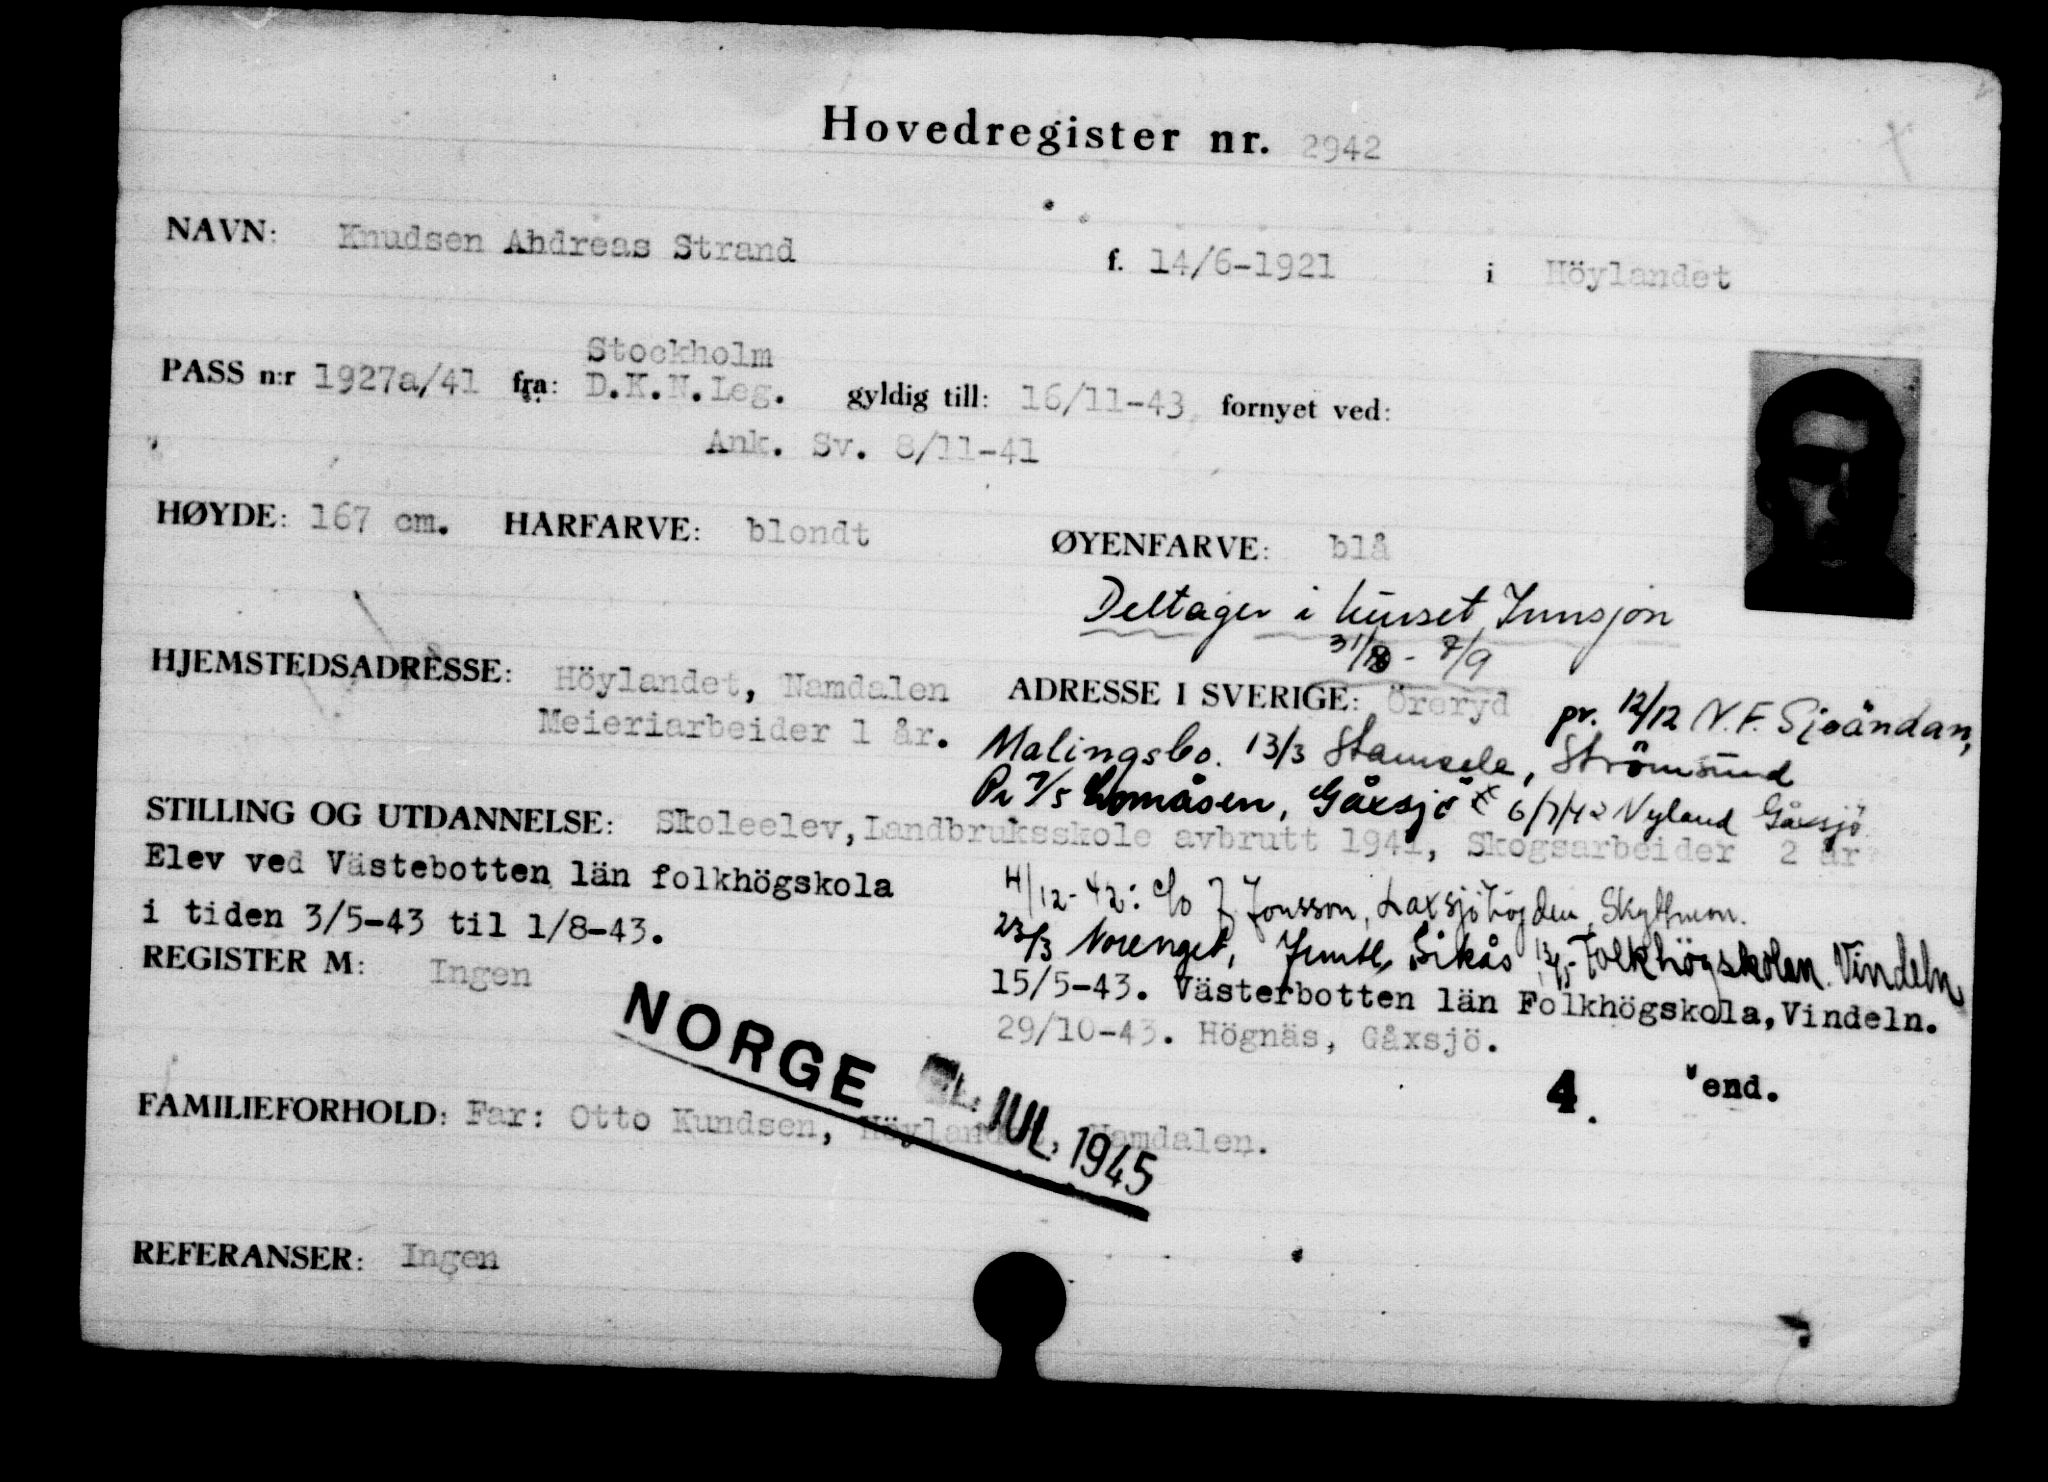 Hovedregister nr. 2942
NAVN: Knudsen Andreas Strand f. 14/6-1921 i Höylandet
Stockholm
PASS n:r 1927a/41 fra: D.K.N.Leg. gyldig till: 16/11-43 fornyet ved:
Ank. Sv. 8/11-41
HØYDE: 167 cm. HÅRFARVE: blondt ØYENFARVE: blå
Deltager i kurset Innsjön
31/8 - 7/9
HJEMSTEDSADRESSE: Höylandet, Namdalen ADRESSE I SVERIGE: Öreryd pr. 12/12 N.F. Sjöändan,
Meieriarbeider 1 år. Malingsbo. 13/3 Stamsele, Strömsund
Pr 7/5 Lomåsen, Gåxsjö 6/7/42 Nyland Gåxsjö
STILLING OG UTDANNELSE: Skoleelev, Landbruksskole avbrutt 1941, Skogsarbeider 2 år
Elev ved Västebotten län folkhögskola
4/12-42: c/o J. Jonsson, Laxsjöhögden, Skyttmon.
i tiden 3/5-43 til 1/8-43.
23/3 Norenget, Jemtl, Sikås Folkhögskolan. Vindeln
REGISTER M: Ingen
15/5-43. Västerbotten län Folkhögskola, Vindeln.
29/10-43. Högnäs, Gåxsjö.
NORGE JUL. 1945
4. vend.
FAMILIEFORHOLD: Far: Otto Kundsen, Höylandet, Namdalen.
REFERANSER: Ingen